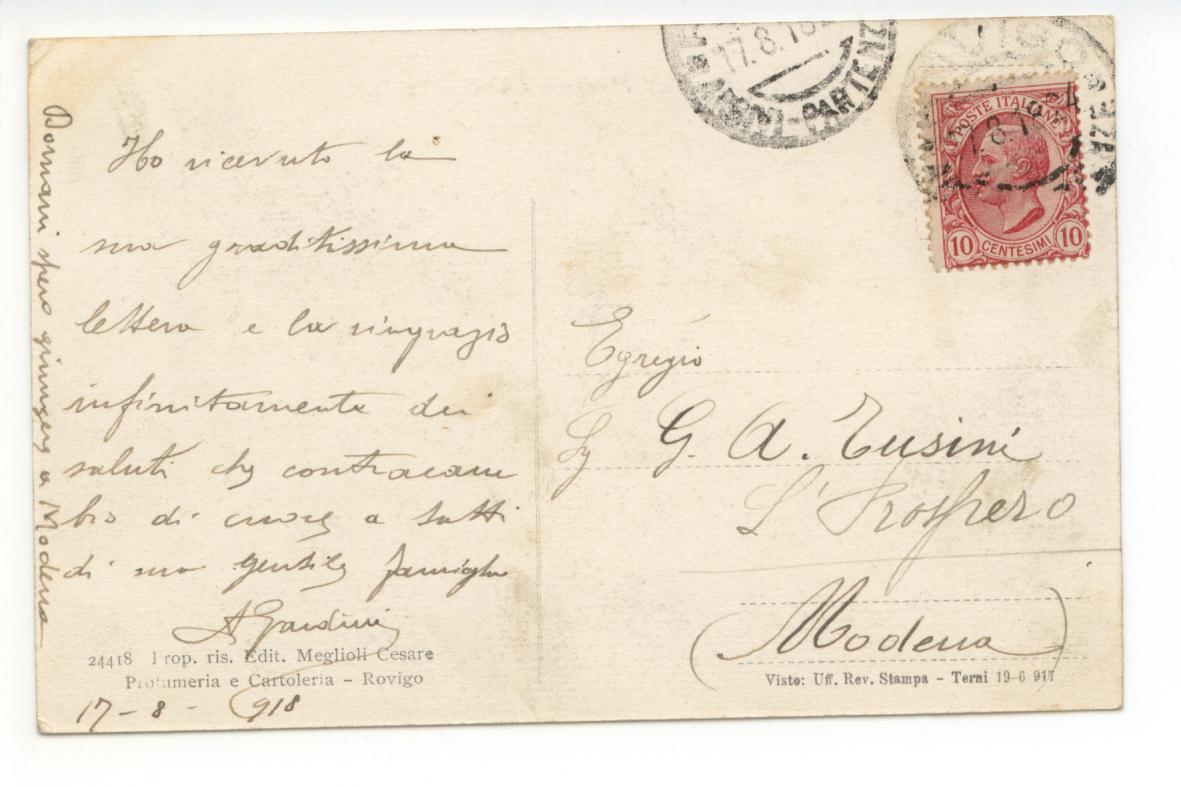 Ho ricevuto la
sua graditissima
lettera e la ringrazio
infinitamente dei
saluti che contraccam
bio di cuore a tutti
di sua gentile famiglia
AGardini
17-8-918
Domani spero giungere a Modena
24418 Prop. ris. Edit. Meglioli Cesare
Profumeria e Cartoleria - Rovigo
17.8.18
ARRIVI-PARTENZ
POSTE ITALIANE
10 CENTESIMI 10
Egregio
Sg G. A. Tusini
S. Prospero
(Modena)
Visto: Uff. Rev. Stampa - Terni 19-6 917